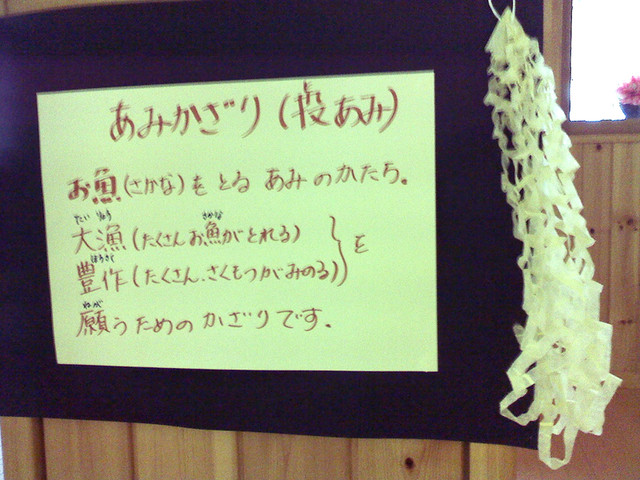 あみかざり(投あみ)
お魚(さかな)をとる あみのかたち。
たいりょう さかな
大漁(たくさんお魚がとれる)
ほうさく
豊作(たくさん、さくもつがみのる) }を
ねが
願うためのかざりです。